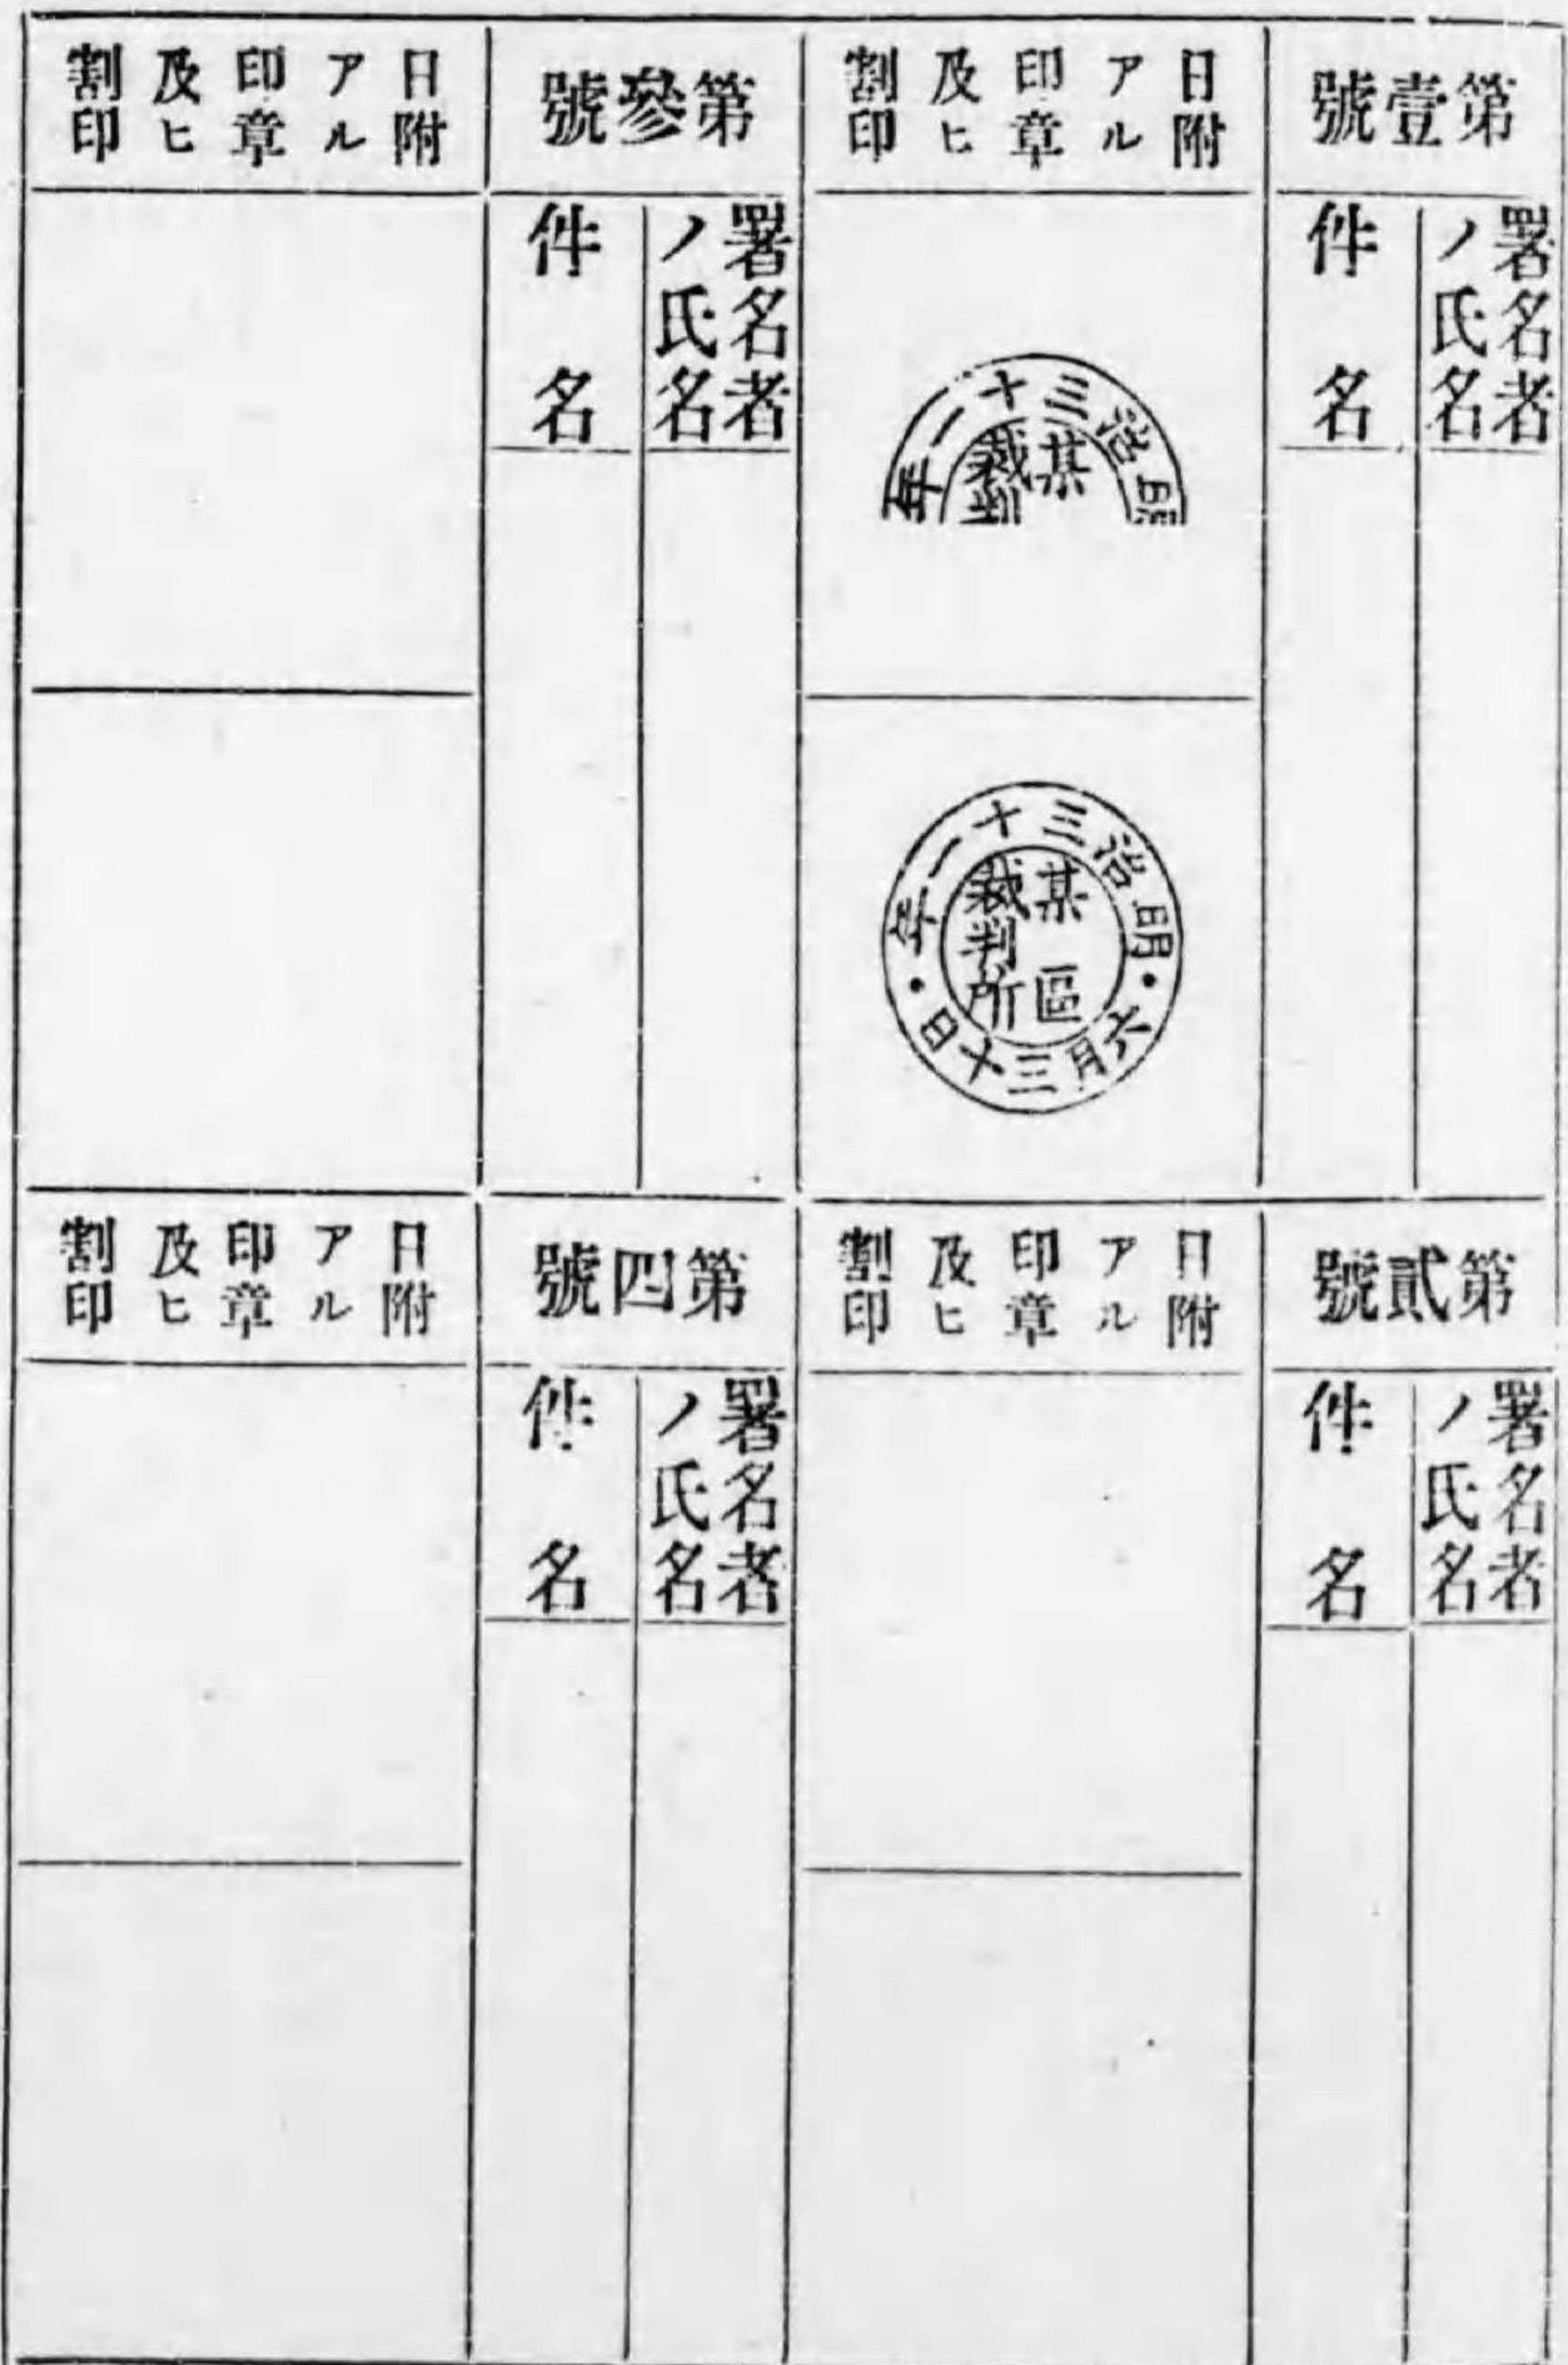 第壹號
署名者
ノ氏名
件名
日附
アル
印章
及ヒ
割印
明治三十一年
某
裁判
某區
裁判所
明治三十一年・六月三十日・
第貳號
署名者
ノ氏名
件名
日附
アル
印章
及ヒ
割印
第參號
署名者
ノ氏名
件名
日附
アル
印章
及ヒ
割印
第四號
署名者
ノ氏名
件名
日附
アル
印章
及ヒ
割印